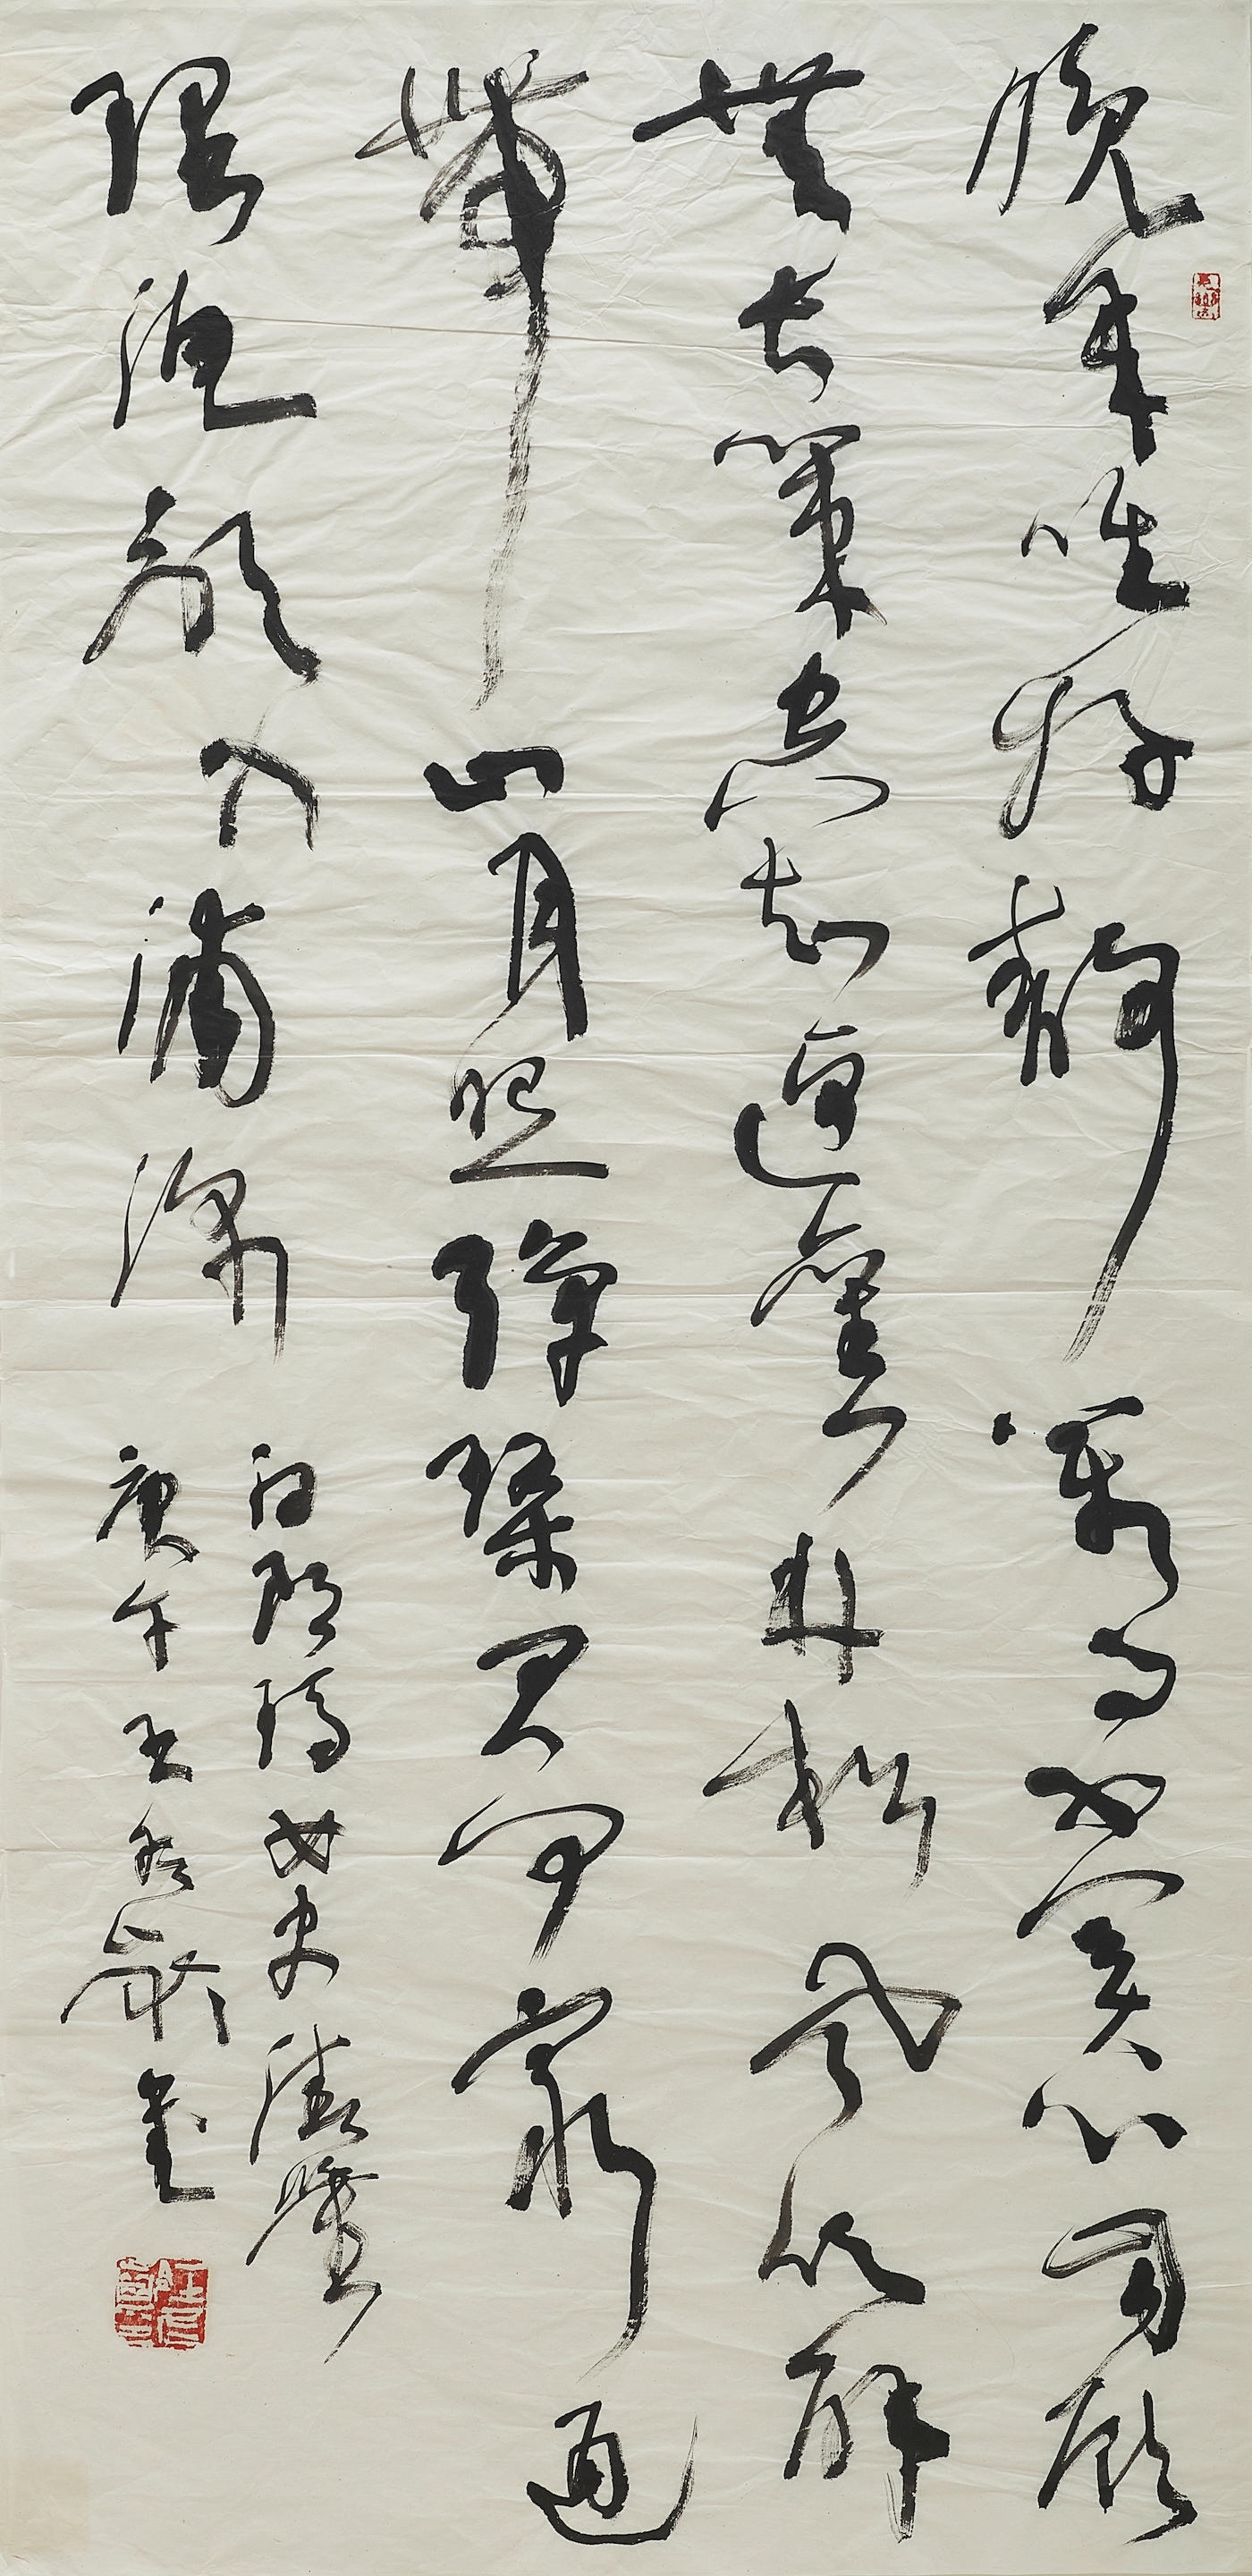 晚年唯好靜萬事不關心自顧
無長策空知返舊林松風吹解
帶山月照彈琴君問窮通
理漁歌入浦深
白 女史 鑒
庚午王冬齡書